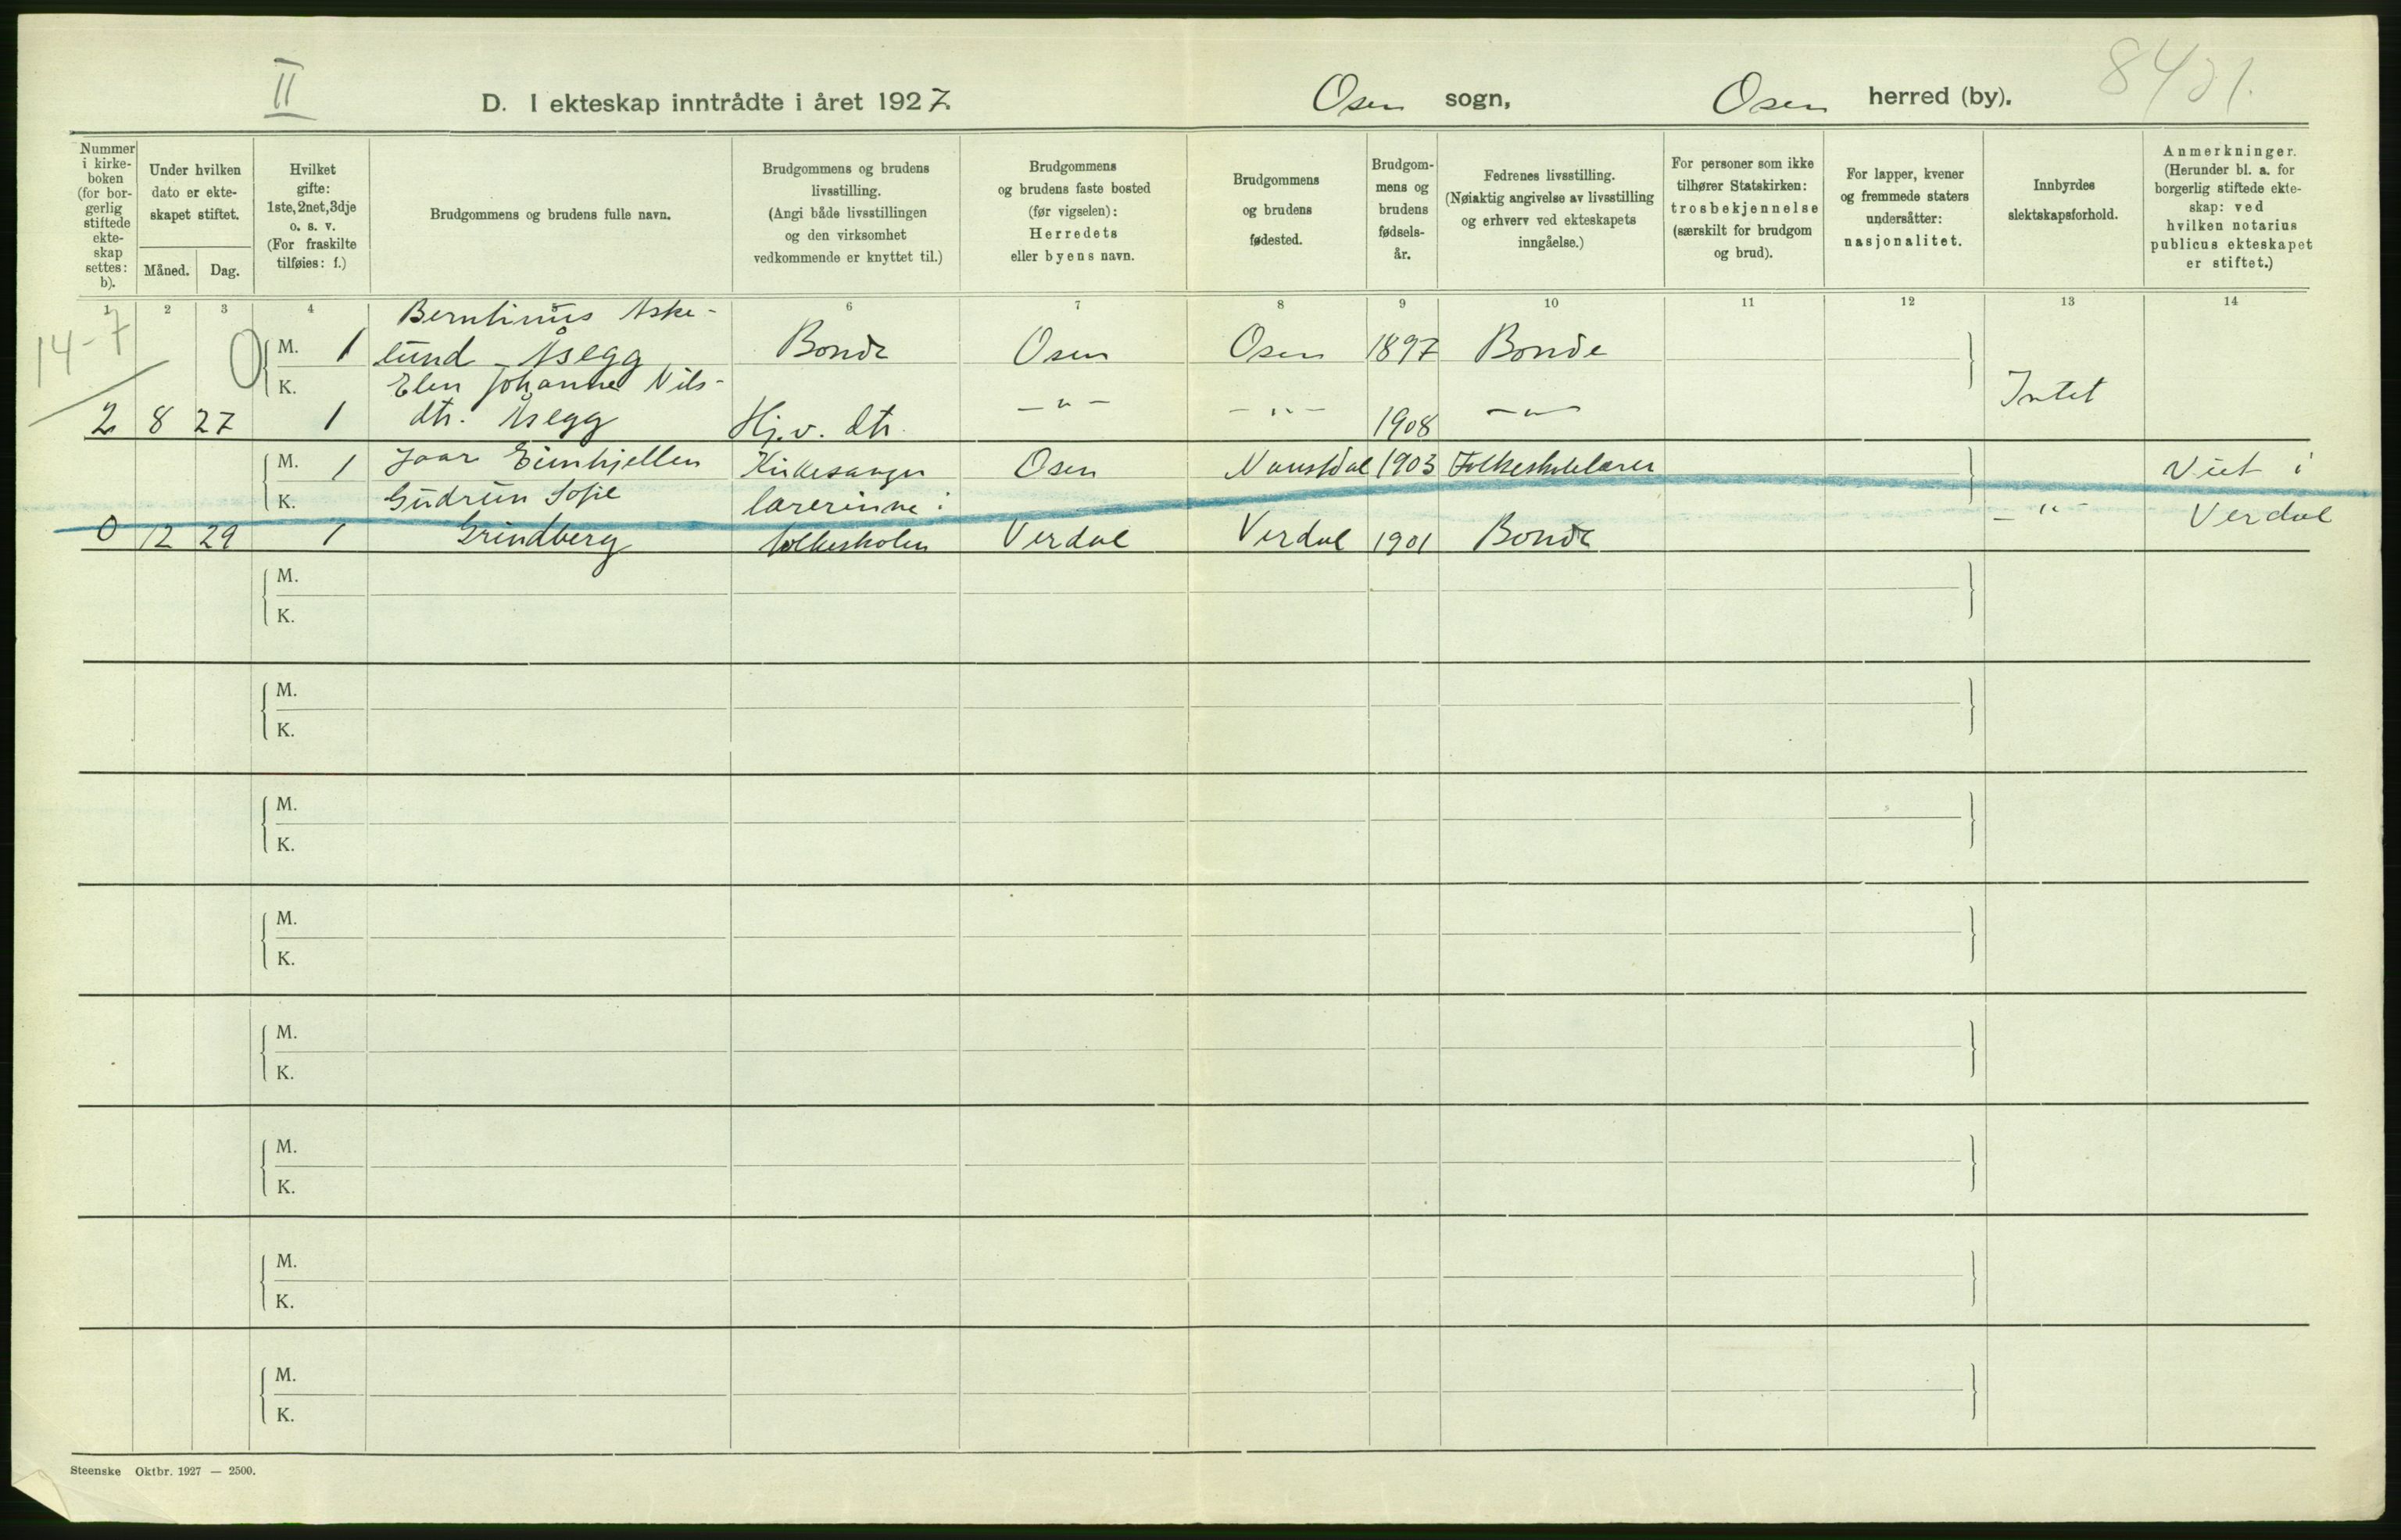 II
D. I ekteskap inntrådte i året 1927.
Osen sogn, Osen herred (by).
Nummer i kirke- boken (for bor- gerlig stiftede ekte- skap settes: b).
Under hvilken dato er ekte- skapet stiftet.
Måned. Dag.
Hvilket gifte: 1ste, 2net, 3dje o. s. v. (For fraskilte tilføies: f.)
Brudgommens og brudens fulle navn.
Brudgommens og brudens livsstilling. (Angi både livsstillingen og den virksomhet vedkommende er knyttet til.)
Brudgommens og brudens faste bosted (før vigselen): Herredets eller byens navn.
Brudgommens og brudens fødested.
Brudgom- mens og brudens fødsels- år.
Fedrenes livsstilling. (Nøiaktig angivelse av livsstilling og erhverv ved ekteskapets inngåelse.)
For personer som ikke tilhører Statskirken: trosbekjennelse (særskilt for brudgom og brud).
For lapper, kvener og fremmede staters undersåtter: nasjonalitet.
Innbyrdes slektskapsforhold.
Anmerkninger. (Herunder bl. a. for borgerlig stiftede ekte- skap: ved hvilken notarius publicus ekteskapet er stiftet.)
1 2 3 4 6 7 8 9 10 11 12 13 14
14-7
Berntinus Aske-
M. 1 lund Åsegg Bonde Osen Osen 1897 Bonde
K. Elen Johanne Nils-
2 8 27 1 dtr. Åsegg Hj.v. dtr. -"- -"- 1908 -"- Intet
M. 1 Joar Eimhjellen Kirkesanger Osen Naustdal 1903 Folkeskolelærer Viet i
K. Gudrun Sofie lærerinne i -"- Verdal
0 12 29 1 Grindberg folkeskolen Verdal Verdal 1901 Bonde
M.
K.
M.
K.
M.
K.
M.
K.
M.
K.
M.
K.
M.
K.
M.
K.
Steenske Oktbr. 1927 — 2500.